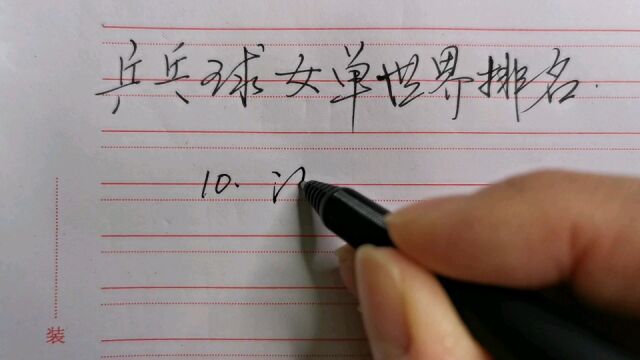 乒乓球女单世界排名.
10.
装